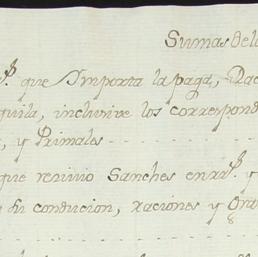 Sumas de la
que Importa la paga,
quila, inclusive los correspond
, y Primales
que recivio Sanches en rxs. y
su conducion, raciones y Gra